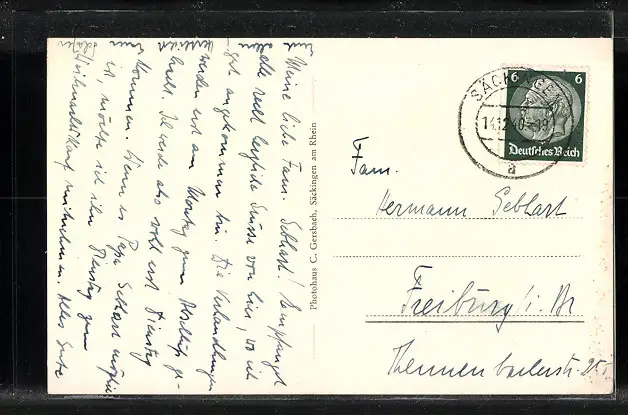 Meine liebe Fam. Gebhart! Empfangt
alle recht herzliche Grüsse von hier, wo ich
gut angekommen bin. Die Verhandlungen
werden erst am Montag zum Abschluß ge-
bracht. Ich werde also wohl erst Dienstag
kommen. Wenn es Papa Gebhart möglich
ist, möchte ich ihn Dienstag zum
Weihnachtskauf mitnehmen. Alles Gute
Photohaus C. Gersbach, Säckingen am Rhein
6 6
Deutsches Reich
SÄCKINGEN
14.12.40
a
Fam.
Hermann Gebhart
Freiburg i. Br
Thennenbacherstr. 25